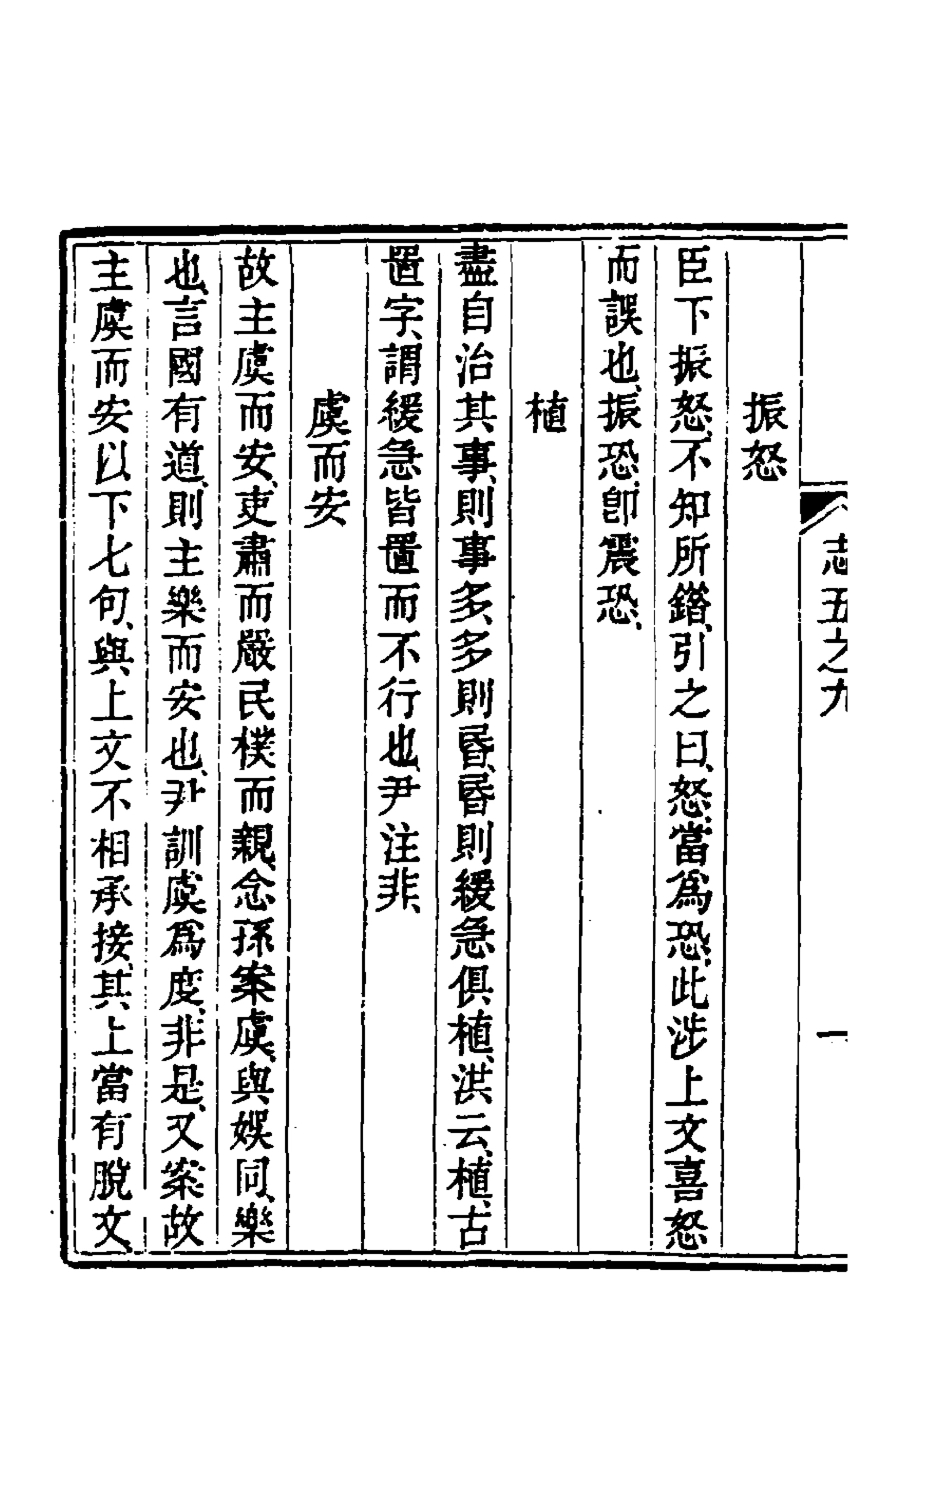 志五之九 一
振怒
臣下振怒、不知所錯、引之曰、怒、當爲恐、此涉上文喜怒
而誤也、振恐、卽震恐、
植
盡自治其事、則事多、多則昬、昬則緩急俱植、洪云、植、古
置字、謂緩急皆置而不行也、尹注非、
虞而安
故主虞而安、吏肅而嚴、民樸而親、念孫案、虞、與娛同、樂
也、言國有道、則主樂而安也、尹訓虞爲度、非是、又案故
主虞而安以下七句、與上文不相承接、其上當有脫文、